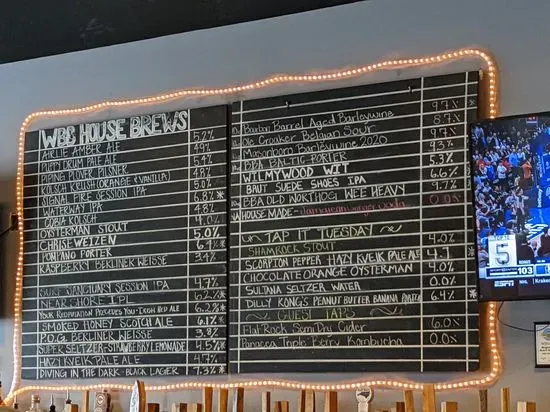 WBC HOUSE BREWS
AIRLIE AMBER ALE 5.2%
APPTERUM PALE ALE 4.9%
PIPING PLOVER PILSNER 5.4%
KOLSCH KRUSH (ORANGE + VANILLA) 4.8%
SIGNAL FIRE SESSION IPA 5.1%
WATERWAY IPA 6.8% *
GOZER KÖLSCH 4.8%
OYSTERMAN STOUT 5.0%
CHRISEWEIZEN 6.4% *
POMPANO PORTER 3.4%
RASPBERRY BERLINER WEISSE
SANCTUARY SESSION IPA 4.7%
NEAR SHORE IPL 6.2% *
YOUR REPUTATION PRECEDES YOU - IRISH RED ALE 6.2% *
SMOKED HONEY SCOTCH ALE 6.1% *
P.O.G. BERLINER WEISSE 3.8%
SUPER SELTZER-STRAWBERRY LEMONADE 4.5%
HAZY KVEIK PALE ALE 4.7%
DIVING IN THE DARK - BLACK LAGER 7.3% *
9.7%
Bourbon Barrel Aged Barleywine 8.7%
Ole Crooker Belgian Sour 9.7%
Masonboro Barleywine 2020 9.3%
BALTIC PORTER 5.3%
WILMYWOOD WIT
BAUT SUEDE SHOES IPA 6.6%
BBA OLD WORTHOG WEE HEAVY 9.7%
HOUSE MADE - Jamaican Ginger Soda 0.0%
TAP IT TUESDAY
SHAMROCK STOUT 4.0%
SCORPION PEPPER HAZY KVEIK PALE ALE 4.7
CHOCOLATE ORANGE OYSTERMAN 4.0%
SULTANA SELTZER WATER 0.0%
DILLY KONG'S PEANUT BUTTER BANANA PORTER 6.4%
GUEST TAPS
Flat Rock Semi Dry Cider 6.0%
Panacea Triple Berry Kombucha 0.0%
5
103
ESPN